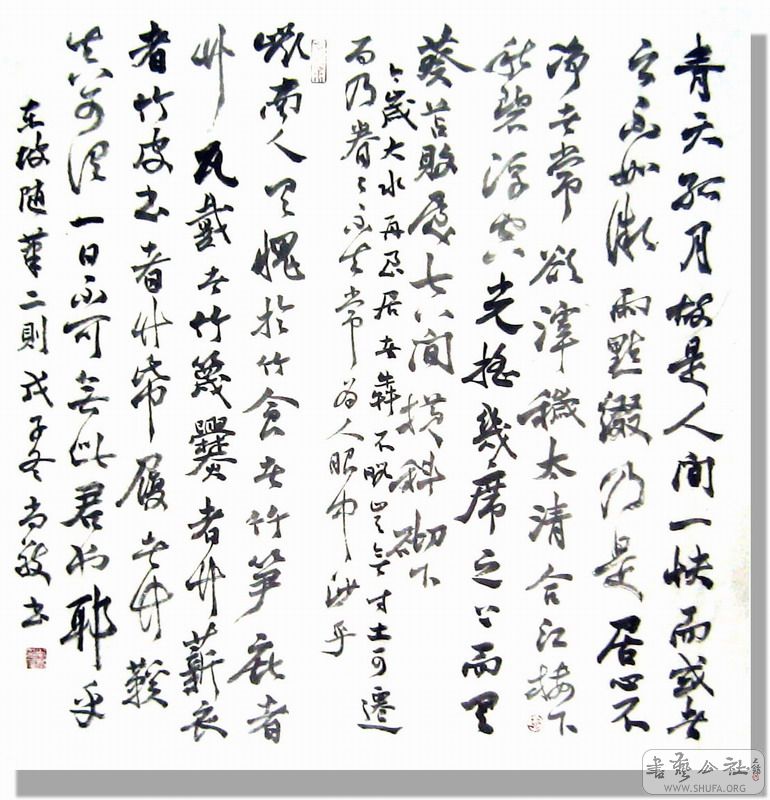 青天孤月故是人间一快而或者
云不如微雨點缀乃是居心不
净者常欲滓穢太清合江楼下
秋碧浮空光摇幾席之上而有
葵苫败屋七八间横斜砌下
今歲大水再至居者奔不暇岂無寸土可遷
而乃眷眷不去常为人眼中沙乎
嶺南人有愧於竹食者竹笋庇者
竹瓦載者竹筏爨者竹薪衣
者竹皮书者竹帋履者竹鞋
真可谓一日不可無此君也耶乎
东坡随筆二則戊子冬尚书
書藝公社
WWW.SHUFA.ORG